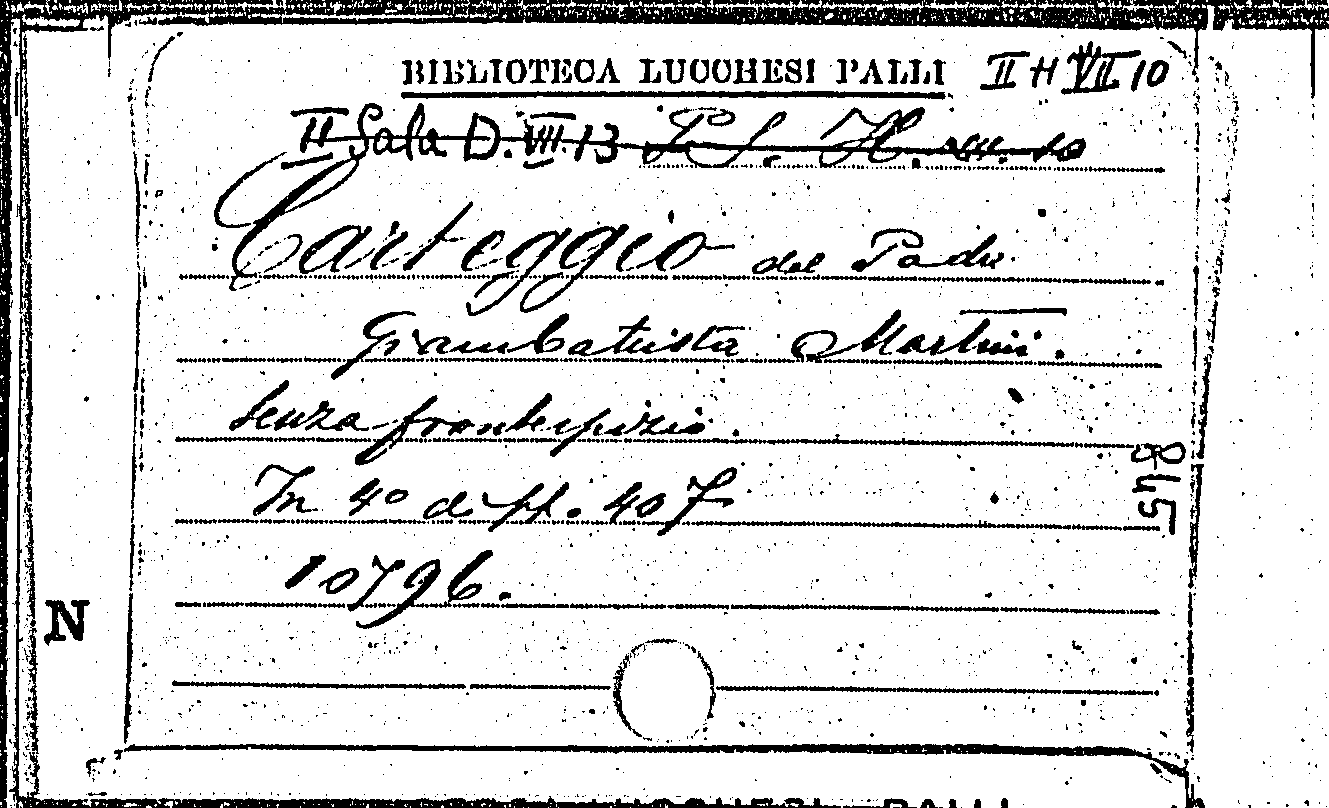 BIBLIOTECA LUCCHESI PALLI II H VII 10
II Sala D. VII. 13 P. S. H. xx. 10
Carteggio del Padre
Giambatista Martini.
Senza frontespizio.
In 4° di pp. 407
10796.
548
N